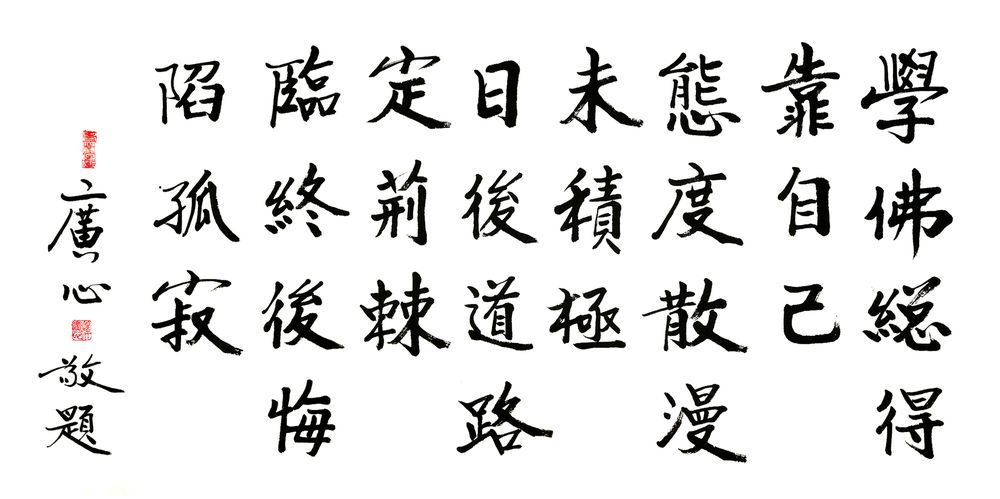 學佛總得
靠自己
態度散漫
未積極
日後道路
定荊棘
臨終後悔
陷孤寂
廣心
敬題